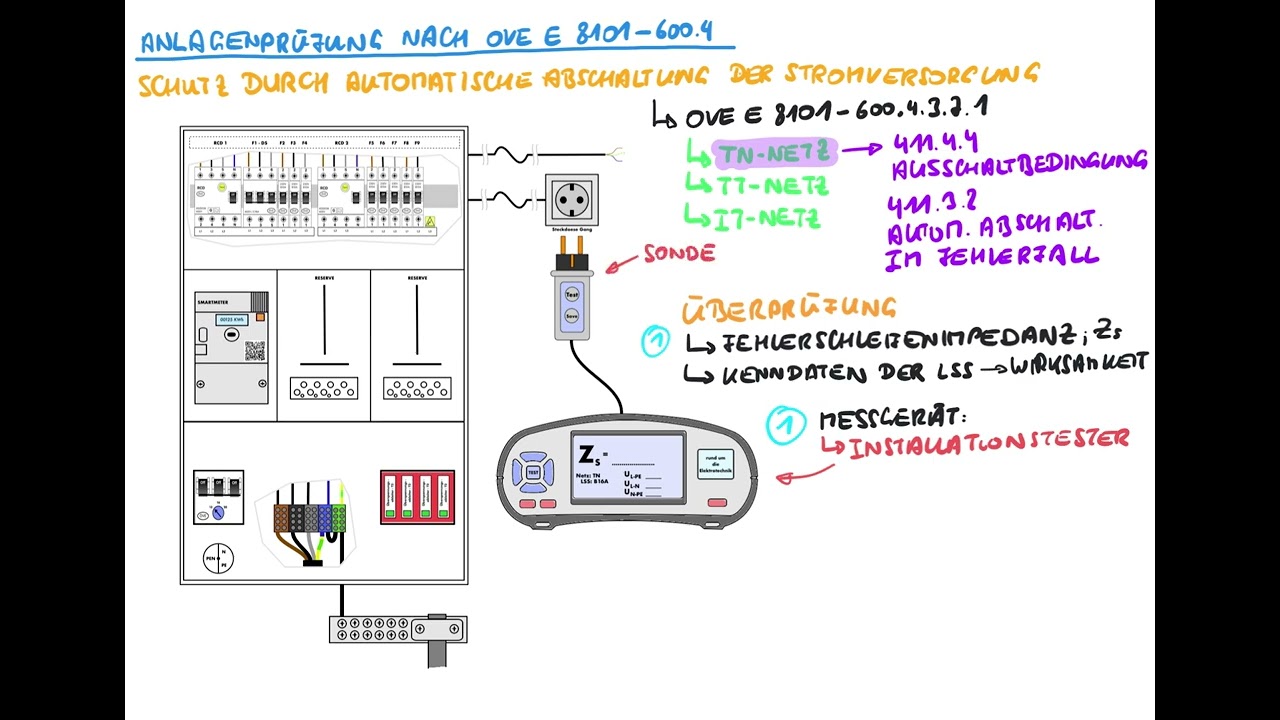 ANLAGENPRÜFUNG NACH OVE E 8101-600.4
SCHUTZ DURCH AUTOMATISCHE ABSCHALTUNG DER STROMVERSORGUNG
↳ OVE E 8101-600.4.3.7.1
↳ TN-NETZ → 411.4.4
AUSSCHALTBEDINGUNG
↳ TT-NETZ
↳ IT-NETZ
411.3.2
AUTOM. ABSCHALT.
IM FEHLERFALL
RCD 1 F1 - DS F2 F3 F4 RCD 2 F5 F6 F7 F8 F9
RCD
RCD
Steckdose Gang
SONDE
Test
Save
RESERVE
RESERVE
SMARTMETER
00125 KWh
ÜBERPRÜFUNG
1 ↳ FEHLERSCHLEIFENIMPEDANZ; Zs
↳ KENNDATEN DER LSS → WIRKSAMKEIT
1 MESSGERÄT:
↳ INSTALLATIONSTESTER
TEST
Zs = ..............
Netz: TN
LSS: B16A
UL-PE
UL-N
UN-PE
rund um
die
Elektrotechnik
PEN N
PE